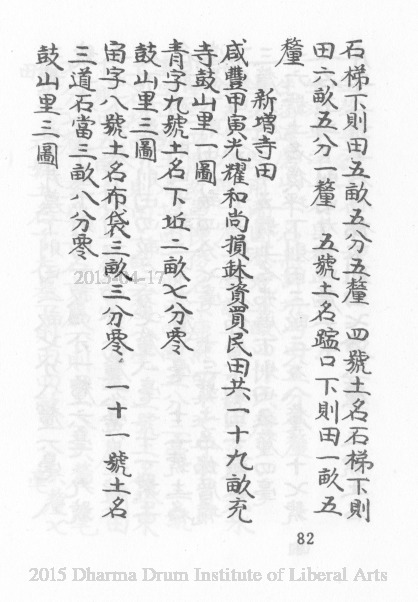 石梯下則田五畝五分五釐　四號土名石梯下則
田六畝五分一釐　五號土名蹹口下則田一畝五
釐
新增寺田
咸豐甲寅光耀和尚損鉢資買民田共一十九畝充
寺鼓山里一圖
青字九號土名下坵二畝七分零
鼓山里三圖
宙字八號土名布袋三畝三分零　一十一號土名
三道石當三畝八分零
鼓山里三圖
82
2015-04-17
2015 Dharma Drum Institute of Liberal Arts